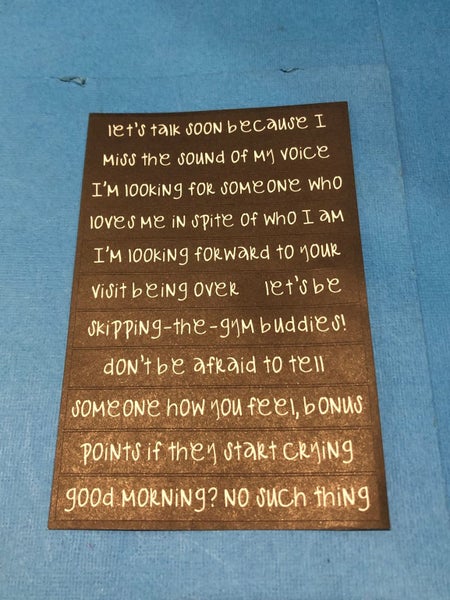 let's talk soon because I
miss the sound of my voice
I'm looking for someone who
loves me in spite of who I am
I'm looking forward to your
visit being over let's be
skipping-the-gym buddies!
don't be afraid to tell
someone how you feel, bonus
points if they start crying
good morning? no such thing